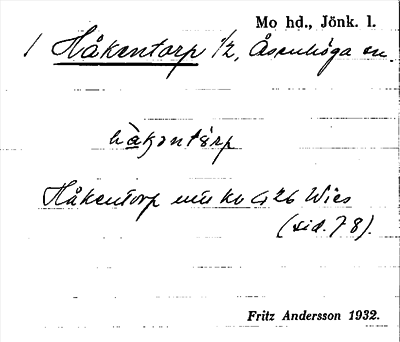 Mo hd., Jönk. l.
1 Håkentorp 1/2, Åsenhöga sn.
hàkəntårp
Håkentorp 1/2 G 26 Wies
(sid. 78).
Fritz Andersson 1932.